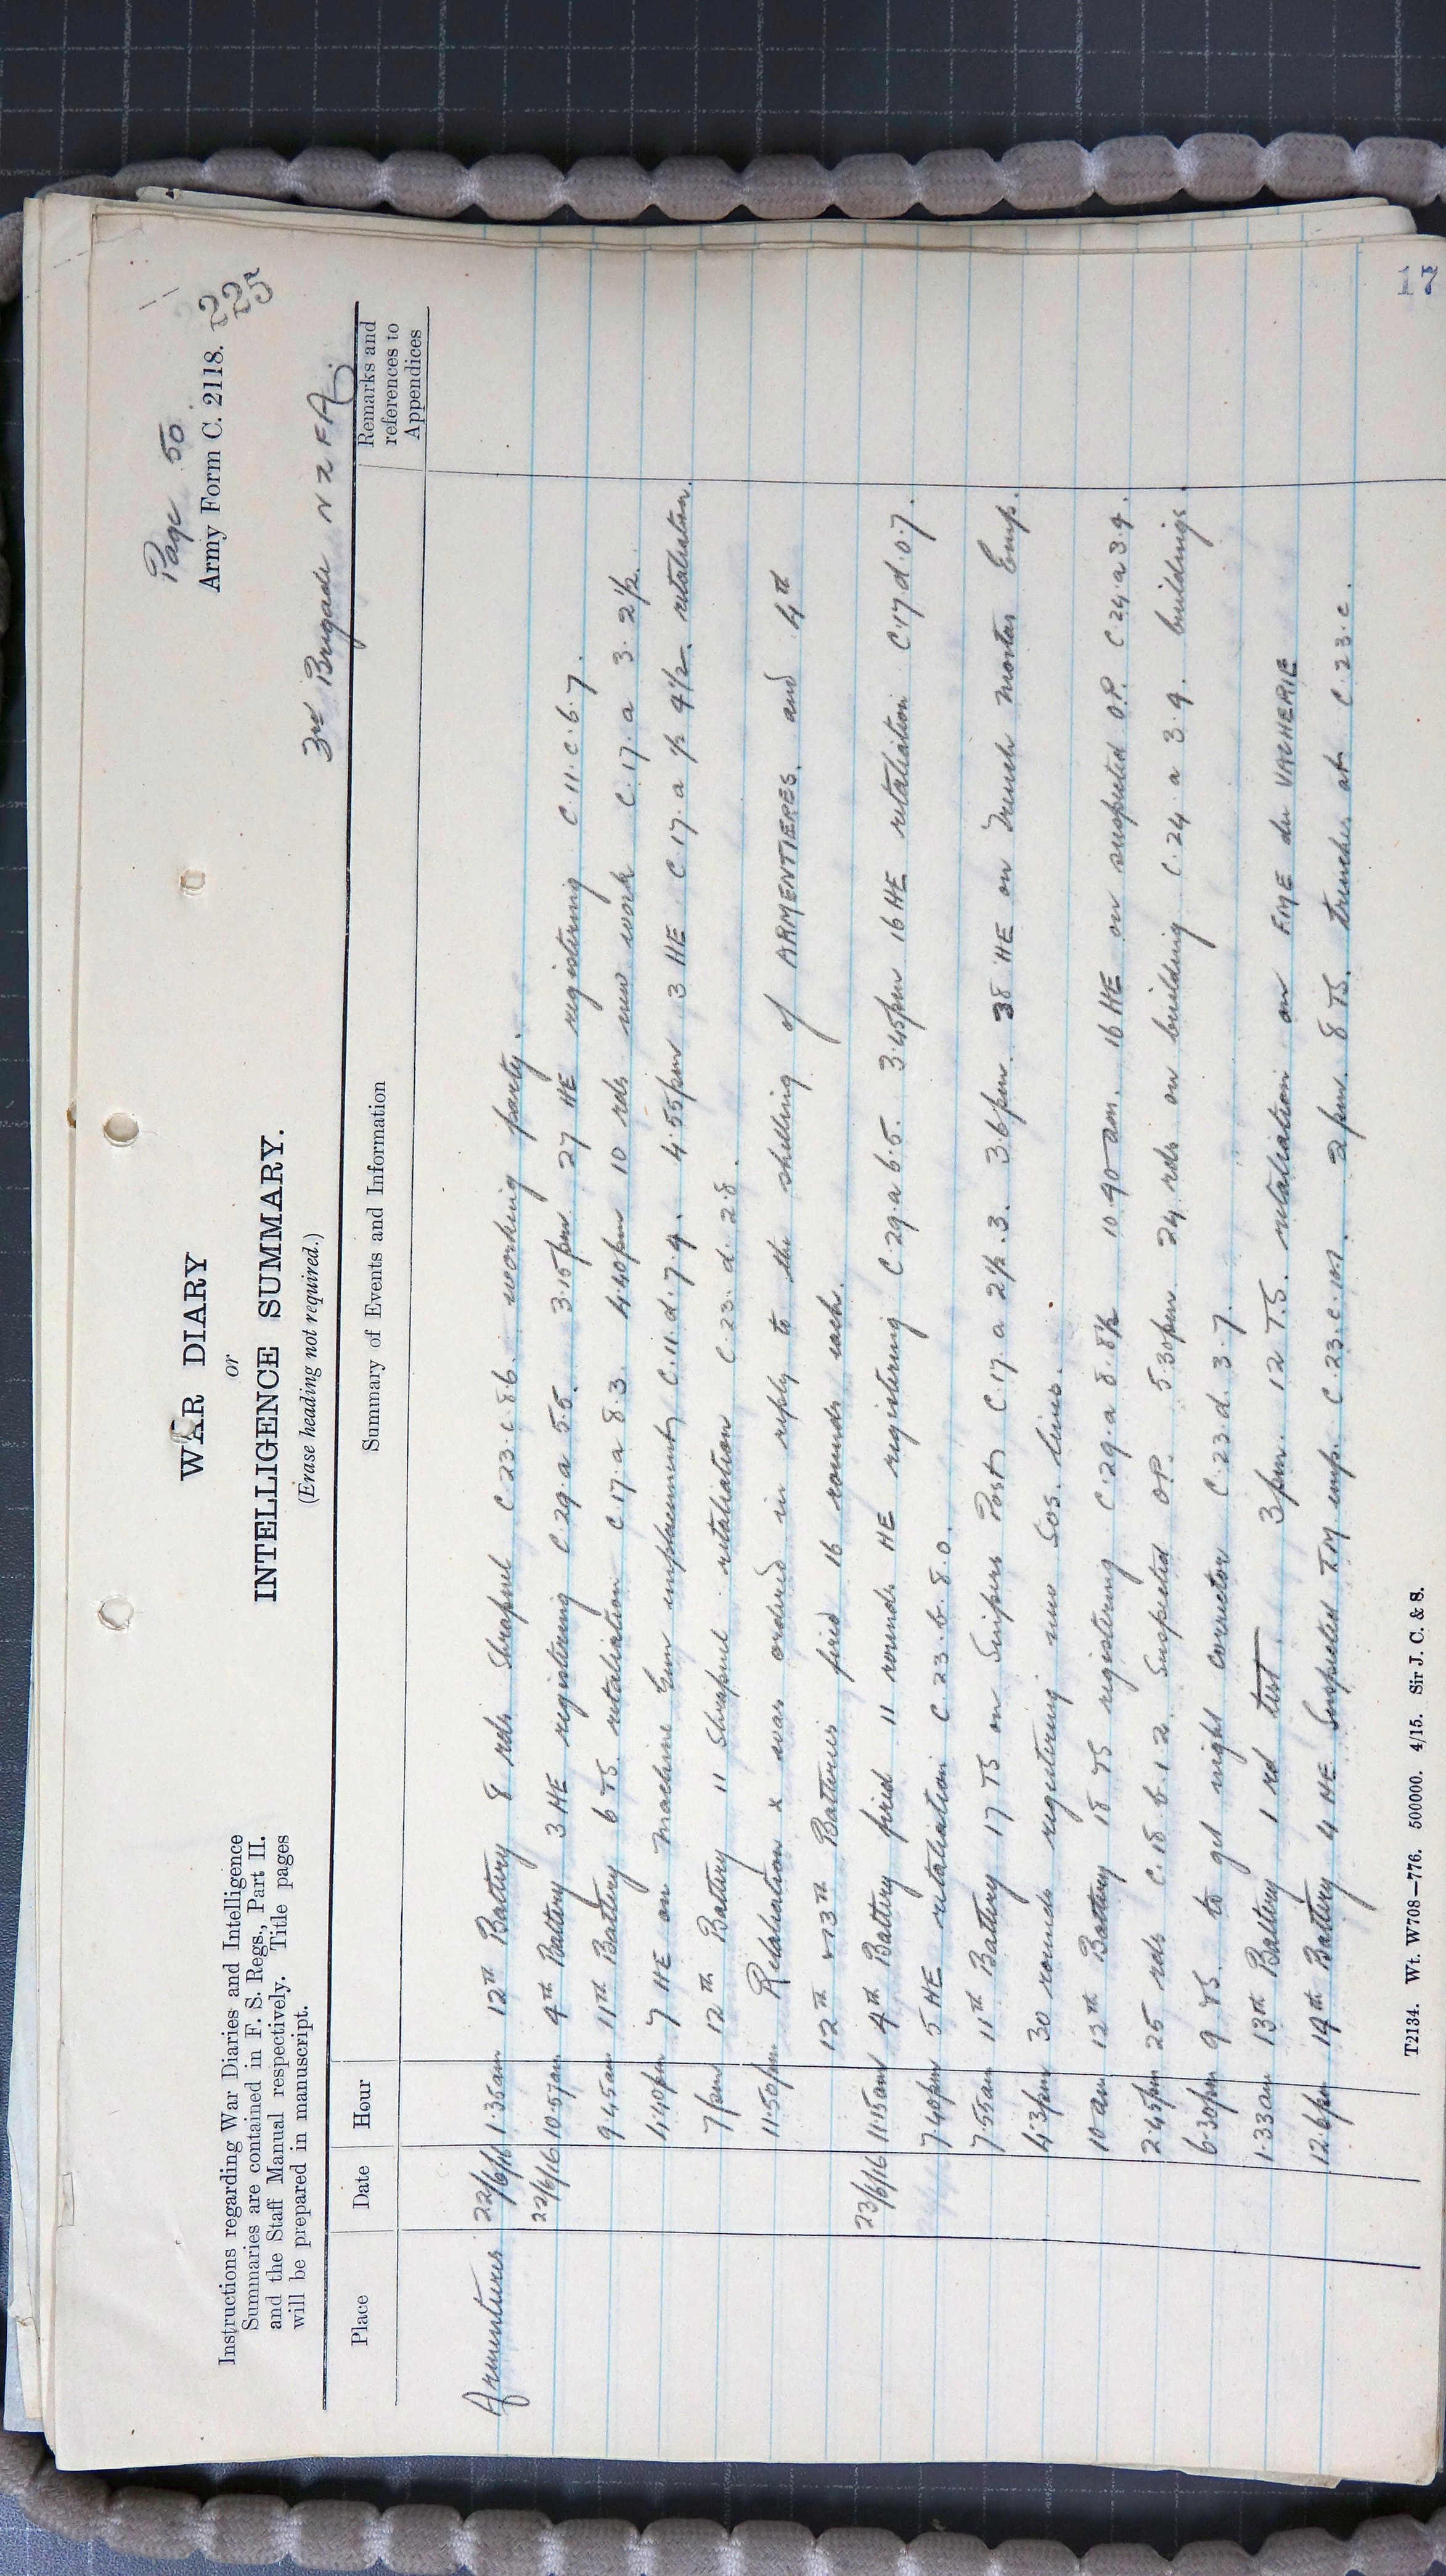 Page 50.
Army Form C. 2118.
225
WAR DIARY
or
INTELLIGENCE SUMMARY.
(Erase heading not required.)
Instructions regarding War Diaries and Intelligence
Summaries are contained in F. S. Regs., Part II.
and the Staff Manual respectively. Title pages
will be prepared in manuscript.
3rd Brigade NZFA.
Place Date Hour Summary of Events and Information Remarks and references to Appendices
Armentieres 22/6/16 1.35am 12th Battery 8 rds Shrapnel C.23.c 8.6. working party.
22/6/16 10.57am 4th Battery 3 HE registering C.29.a 5.5. 3.15pm 27 HE registering C.11.c.6.7.
9.45am 11th Battery 6 TS retaliation C.17.a 8.3. 4.40pm 10 rds new work C.17.a 3. 2½.
4.40pm 7 HE on Machine Gun emplacement C.11.d.7.4. 4.55pm 3 HE C.17.a ½ 4½. retaliation.
7pm 12th Battery 11 Shrapnel retaliation C.23.d.2.8.
11.50pm Retaliation x was ordered in reply to the shelling of ARMENTIERES. and 4th
12th & 13th Batteries fired 16 rounds each.
23/6/16 11.15am 4th Battery fired 11 rounds HE registering C.29.a 6.5. 3.45pm 16 HE retaliation C.17.d.0.7.
7.40pm 5 HE retaliation C.23.b.8.0.
7.55am 11th Battery 17 TS on Snipers Post C.17.a 2½.3. 3.6pm. 38 HE on Trench Mortar Emp.
4.3pm 30 rounds registering new Sos. lines.
10am 12th Battery 18 TS registering C.29.a 8.8½ 10.40am. 16 HE on suspected O.P. C.24.a 3.9.
2.45pm 25 rds C.18.b.1.2. Suspected OP. 5.30pm. 24 rds on building C.24.a 3.9. buildings.
6.30pm 9 TS. to get right corrector C.23.d.3.7.
1.33am 13th Battery 1 rd test. 3pm. 12 T.S. retaliation on FME du VACHERIE
12.6pm 14th Battery 4 HE Suspected TM emp. C.23.c. 2pm. 8 TS. trenches at C.23.c.
T2134. Wt. W708—776. 500000. 4/15. Sir J. C. & S.
17